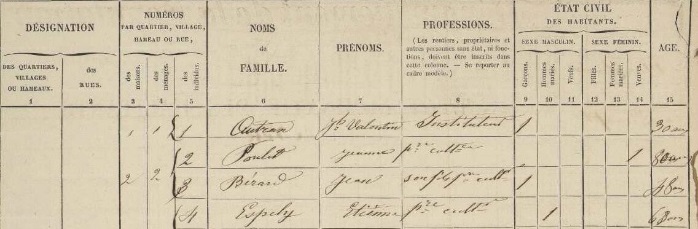 DÉSIGNATION
NUMÉROS
PAR QUARTIER, VILLAGE,
HAMEAU OU RUE,
NOMS
de
FAMILLE.
PRÉNOMS.
PROFESSIONS.
(Les rentiers, propriétaires et
autres personnes sans état, ni fonc-
tions, doivent être inscrits dans
cette colonne. — Se reporter au
cadre modèle.)
ÉTAT CIVIL
DES HABITANTS.
SEXE MASCULIN.
SEXE FÉMININ.
AGE.
DES QUARTIERS,
VILLAGES
OU HAMEAUX.
des
RUES.
des
maisons.
des
ménages.
des
individus.
Garçons.
Hommes
mariés.
Veufs.
Filles.
Femmes
mariées.
Veuves.
1 2 3 4 5 6 7 8 9 10 11 12 13 14 15
1 1 1 Autran Jh Valentin Instituteur 1 30 ans
2 Jeanne pre cultre 1
2 2 3 Bérard Jean son fils pre cultr 1 48 ans
4 Espely Etienne pre cultr 1 68 ans